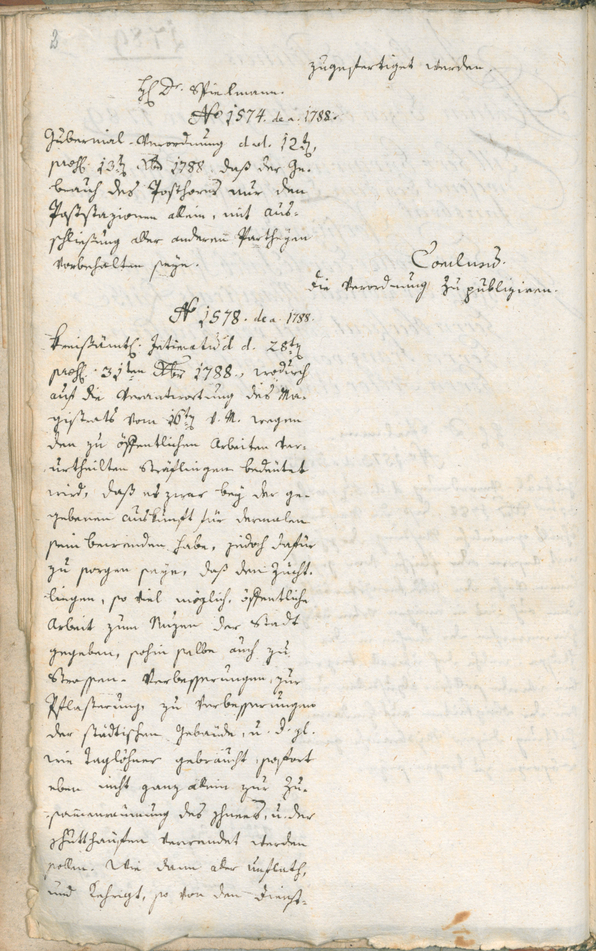 2
zugefertiget werden.
H. Dr. Spielmann.
No 1574. de a. 1788.
Gubernial-Verordnung d. d. 12t,
praes. 13t Xbr 1788 daß der Ge-
brauch des Posthorns nur den
Poststazionen allein, mit Aus-
schließung aller anderen Partheyen
vorbehalten seye.
Conclusum.
Die Verordnung zu publiziren.
No 1578. de a. 1788.
Kreisämtl. Intimatum d. d. 28t
praes. 31ten Xbr 1788, wodurch
auf die Verantwortung des Ma-
gistrats vom 16t v. M. wegen
den zu öffentlichen Arbeiten ver-
urtheilten Sträflingen bedeutet
wird, daß es zwar bey der ge-
gebenen Auskunft für dermalen
sein bewenden habe, jedoch dafür
zu sorgen seye, daß den Zücht-
lingen, so viel möglich, öffentliche
Arbeit zum Nuzen der Stadt
gegeben, sohin selbe auch zu
Strassen-Verbesserungen, zur
Pflasterung, zu Verbesserungen
der städtischen Gebäude, u. d. gl.
wie Taglöhner gebraucht, sofort
eben nicht ganz allein zur Zu-
sammenräumung des Schnees, u. der
Schutthaufen verwendet werden
sollen. Wie dann aller Unflath,
und Kehrigt, so von den Dienst-